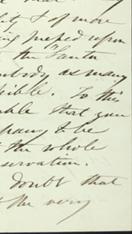 t & of more
ing preped upon
the Santa
nybody as many
sible. To this
able that you
pany to be
the whole
servation.
doubt that
the very